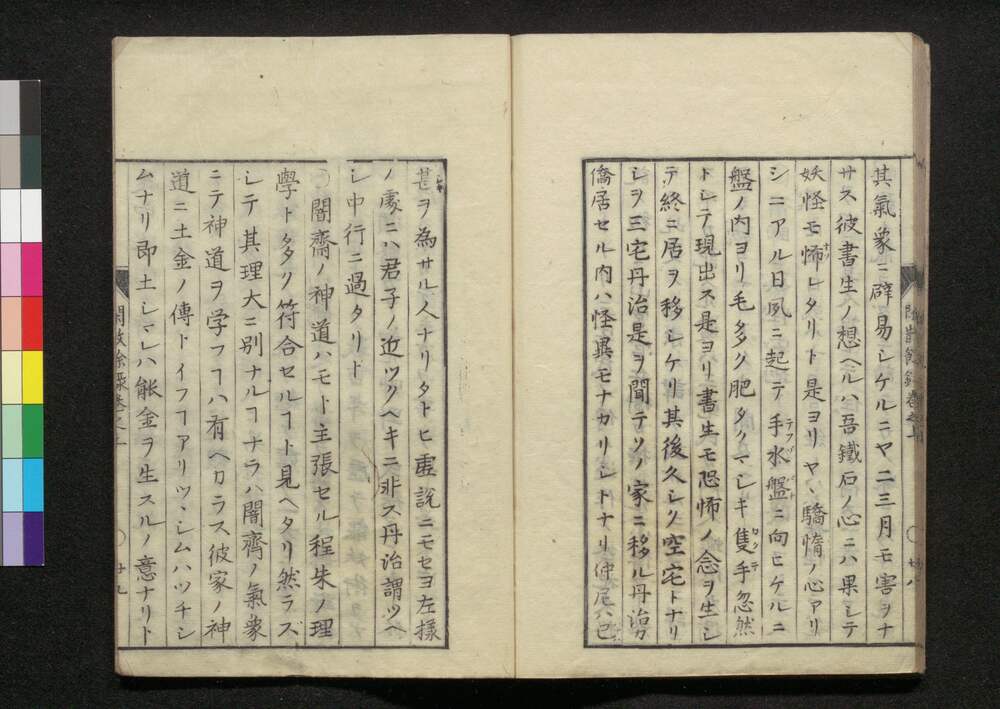 其氣象ニ辟易シケルニヤ二三月モ害ヲナ
サス彼書生ノ想ヘルハ吾鐵石ノ心ニハ果シテ
妖怪モ怖レタリト是ヨリヤヽ驕惰ノ心アリ
シニアル日夙ニ起テ手水盤ニ向ヒケルニ
盤ノ内ヨリ毛多ク肥タクマシキ隻手忽然
トシテ現出ス是ヨリ書生モ恐怖ノ念ヲ生シ
テ終ニ居ヲ移シケリ其後久シク空宅トナリ
シヲ三宅丹治是ヲ聞テソノ家ニ移ル丹治カ
僑居セル内ハ怪異モナカリシトナリ仲尼ハ已
甚ヲ為サル人ナリタトヒ虚説ニモセヨ左様
ノ處ニハ君子ノ近ツクヘキニ非ス丹治謂ツヘ
シ中行ニ過タリト
〇闇齋ノ神道ハモト主張セル程朱ノ理
學トタク符合セルヿト見ヘタリ然ラズ
シテ其理大ニ別ナルヿナラハ闇齊ノ氣象
ニテ神道ヲ学フヿハ有ヘカラス彼家ノ神
道ニ土金ノ傳トイフヿアリツヽシムハツチシ
ムナリ即土シマレハ能金ヲ生スルノ意ナリト